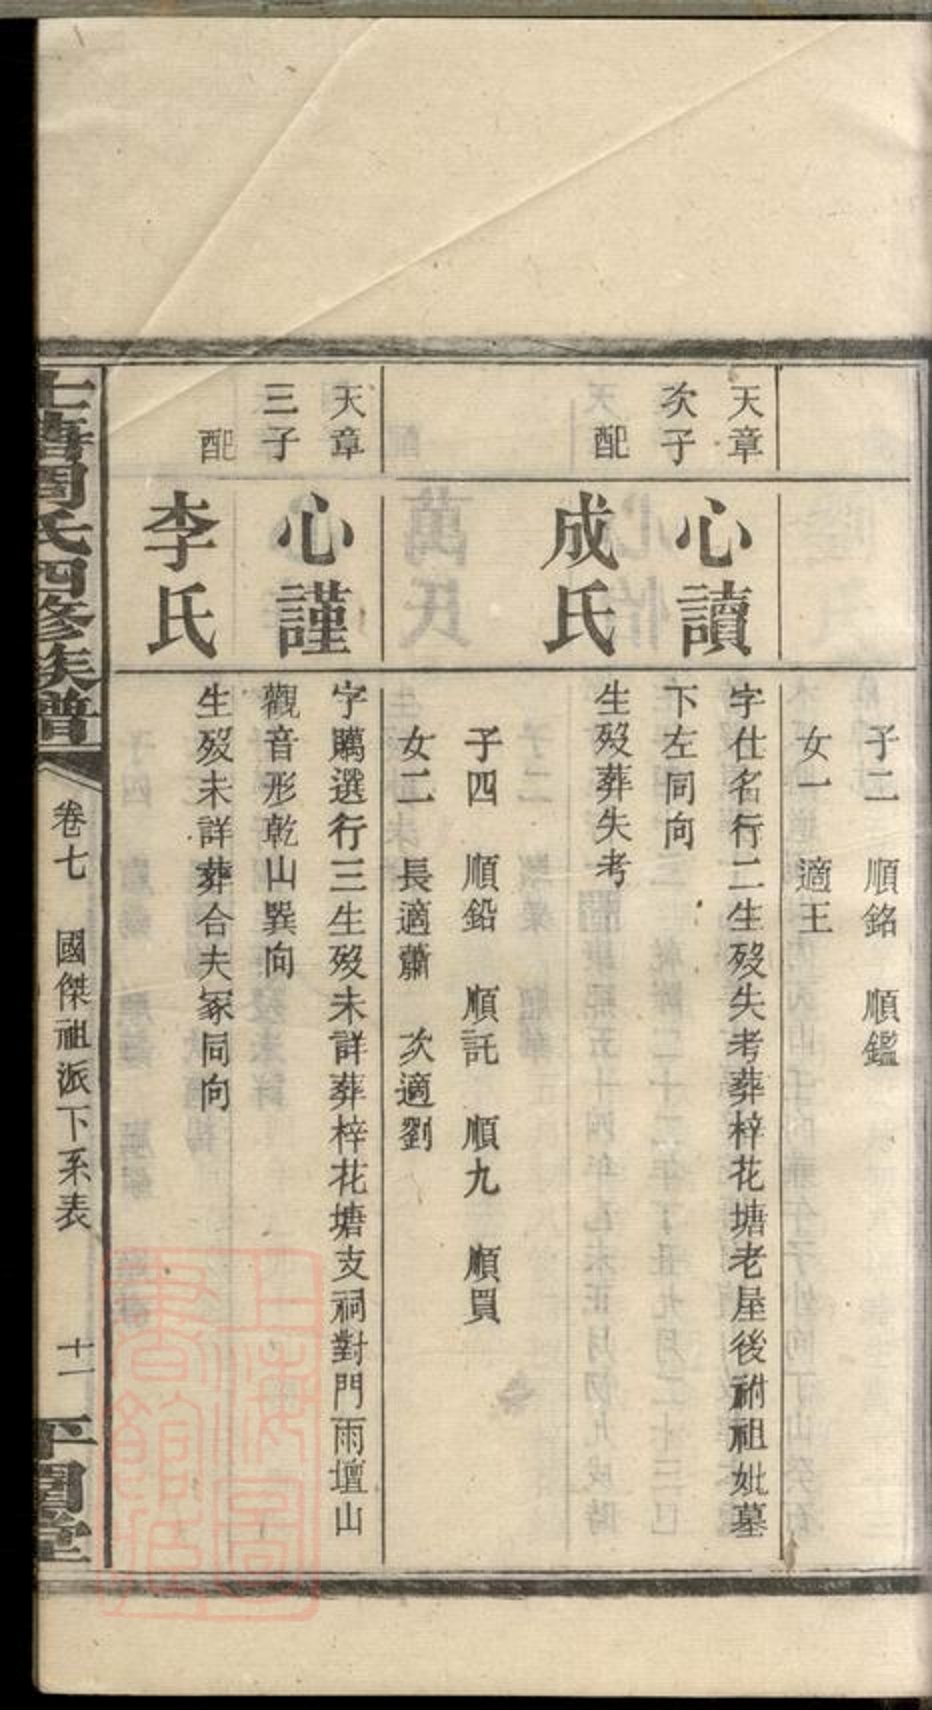 子二　順銘　順鑑
女一　適王
天章
次子
心讀
字仕名行二生歿失考葬梓花塘老屋後祔祖妣墓
下左同向
配
成氏
生歿葬失考
子四　順鉛　順託　順九　順買
女二　長適蕭　次適劉
天章
三子
心謹
字騰選行三生歿未詳葬梓花塘支祠對門雨壇山
觀音形乾山巽向
配
李氏
生歿未詳葬合夫冢同向
周氏四修族譜
卷七　國傑祖派下系表
十一
上海圖書館藏